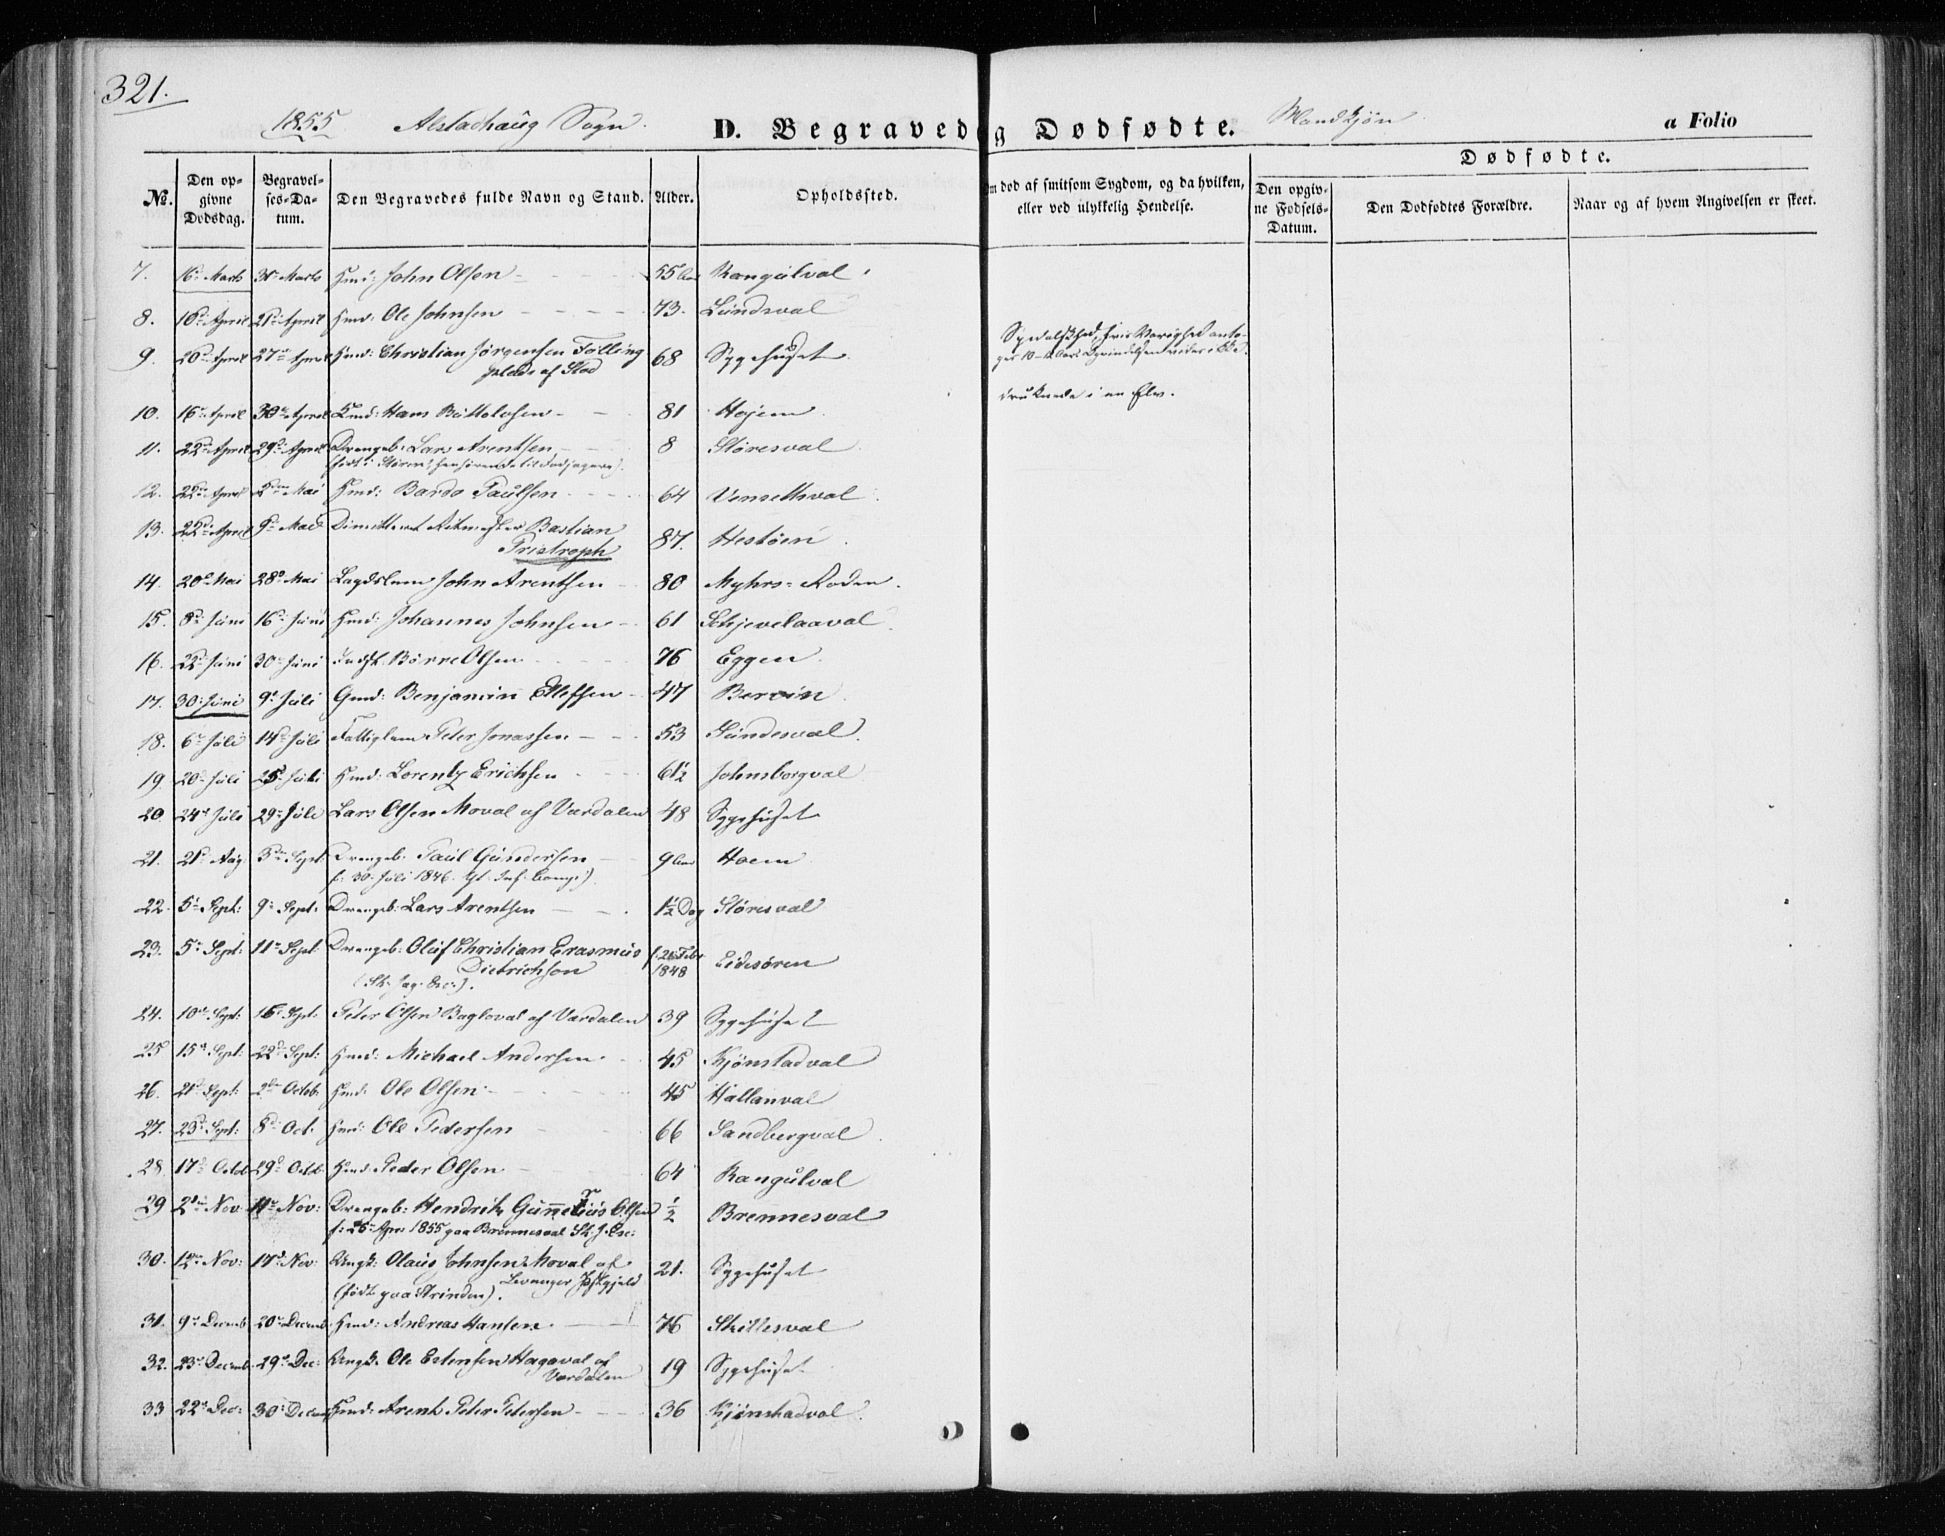 321.
1855 Alstadhaug Sogn. D. Begravede og Dødfødte. Mandkjøn a Folio
Dødfødte.
No. Den opgivne Dødsdag. Begravelses-Datum. Den Begravedes fulde Navn og Stand. Alder. Opholdssted. Om død af smitsom Sygdom, og da hvilken, eller ved ulykkelig Hendelse. Den opgivne Fødsels-Datum. Den Dødfødtes Forældre. Naar og af hvem Angivelsen er skeet.
7. 16de Marts Marts Hmd: John Olsen 55 Aar Rangulval
8. 16de April 21de April Hmd: Ole Johnsen 73. Lundsval
9. 20de April 27de April Hmd: Christian Jørgensen Følling 68 Sygehuset. Spedalskhed, hvis Varighed
af Stod
10. 16de April 30de April Kmd: Hans Bottolvsen 81 Hojem druknede i en Elv.
11. 22de April 29de April Drengeb: Lars Arentsen 8 Störesval
12. 22de April Mai Hmd: Bardo Paulsen 64 Vensethval
13. 22de April Mai Dimitteret Bastian 87. Hestöen
Tristroph
14. 20de Mai 28de Mai Lagdslem John Arentsen 80 Myhrs-Roden.
15. 8de Juni 16de Juni Hmd: Johannes Johnsen 61 Schjevelaaval
16. 22de Juni 30de Juni Indst. Börre Olsen 76 Eggen
17. 30: Juni 9de Juli Gmd: Benjamin Ellefsen 47 Beroin
18. 6de Juli 14de Juli Fattiglem Peter Jonassen 53 Gundesval
19 20de Juli 25de Juli Hmd: Lorentz Erichsen 61½ Johnsborgval
20. 24de Juli 29de Juli Lars Olsen Moval af Værdalen 48 Sygehuset
21. 21de Aug Sept: Drengeb. Paul Gundersen 9 Aar Hoem
f: 30. Juli 1846.
22. 5te Sept: 9de Sept: Drengeb: Lars Arentsen 1½ Dag Störesval
23. 5te Sept: 11te Sept: Drengeb: Oluf Christian Erasmus f: 26 Febr 1848 Eidesören
Dietrichson
24. 10de Sept: 16de Sept: Peter Olsen Bagloval af Værdalen 39 Sygehuset
25 15de Sept: 22de Sept: Hmd: Michael Andersen. 45 Kjönstadval
26. 21de Sept: 2den Octob. Hmd: Ole Olsen 45 Hallanval
27. 23de Sept: 8de Oct. Hmd: Ole Pedersen 66 Sandbergval
28. 17de Octob 29de Octob Hmd: Peder Olsen 64 Rangulval
29 2den Nov 11te Nov: Drengeb: Hendrik Gunnerius Olsen ½ Brennesval
f: 25de Apr 1855 paa Brennesval
30. 12te Nov: 17de Nov: Ungk: Olaus Johnsen Moval af 21. Sygehuset
(född paa Strinden). Levanger Præstgjeld
31. 9de Decemb 20de Decemb. Hmd: Andreas Hansen 76 Skillesval
32. 23de Decemb 29de Dec: Ungk. Ole Estensen Hagaval af 19 Sygehuset
Værdalen
33 22de Dec: 30de Decemb Hmd: Arent Peter Petersen 36 Kjönstadval.